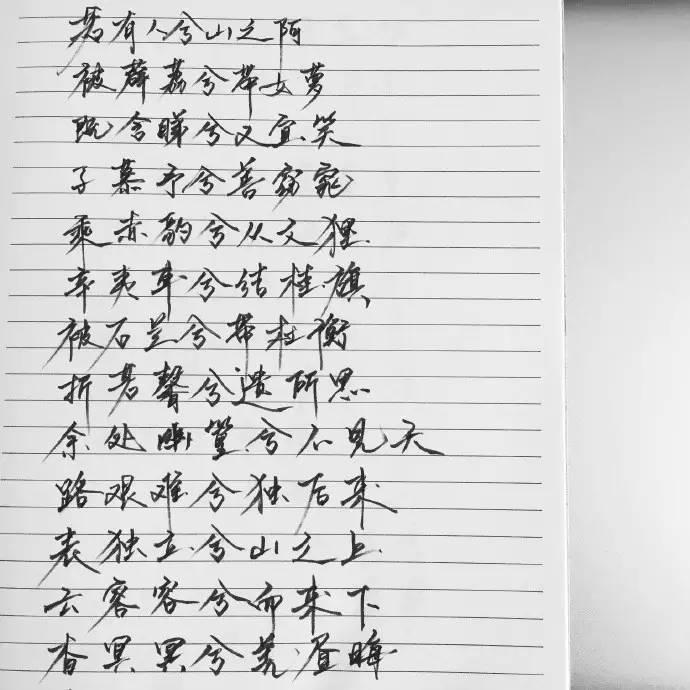 若有人兮山之阿
被薜荔兮带女萝
既含睇兮又宜笑
子慕予兮善窈窕
乘赤豹兮从文狸
辛夷车兮结桂旗
被石兰兮带杜衡
折若馨兮遗所思
余处幽篁兮不见天
路艰难兮独后来
表独立兮山之上
云容容兮而来下
杳冥冥兮羌昼晦